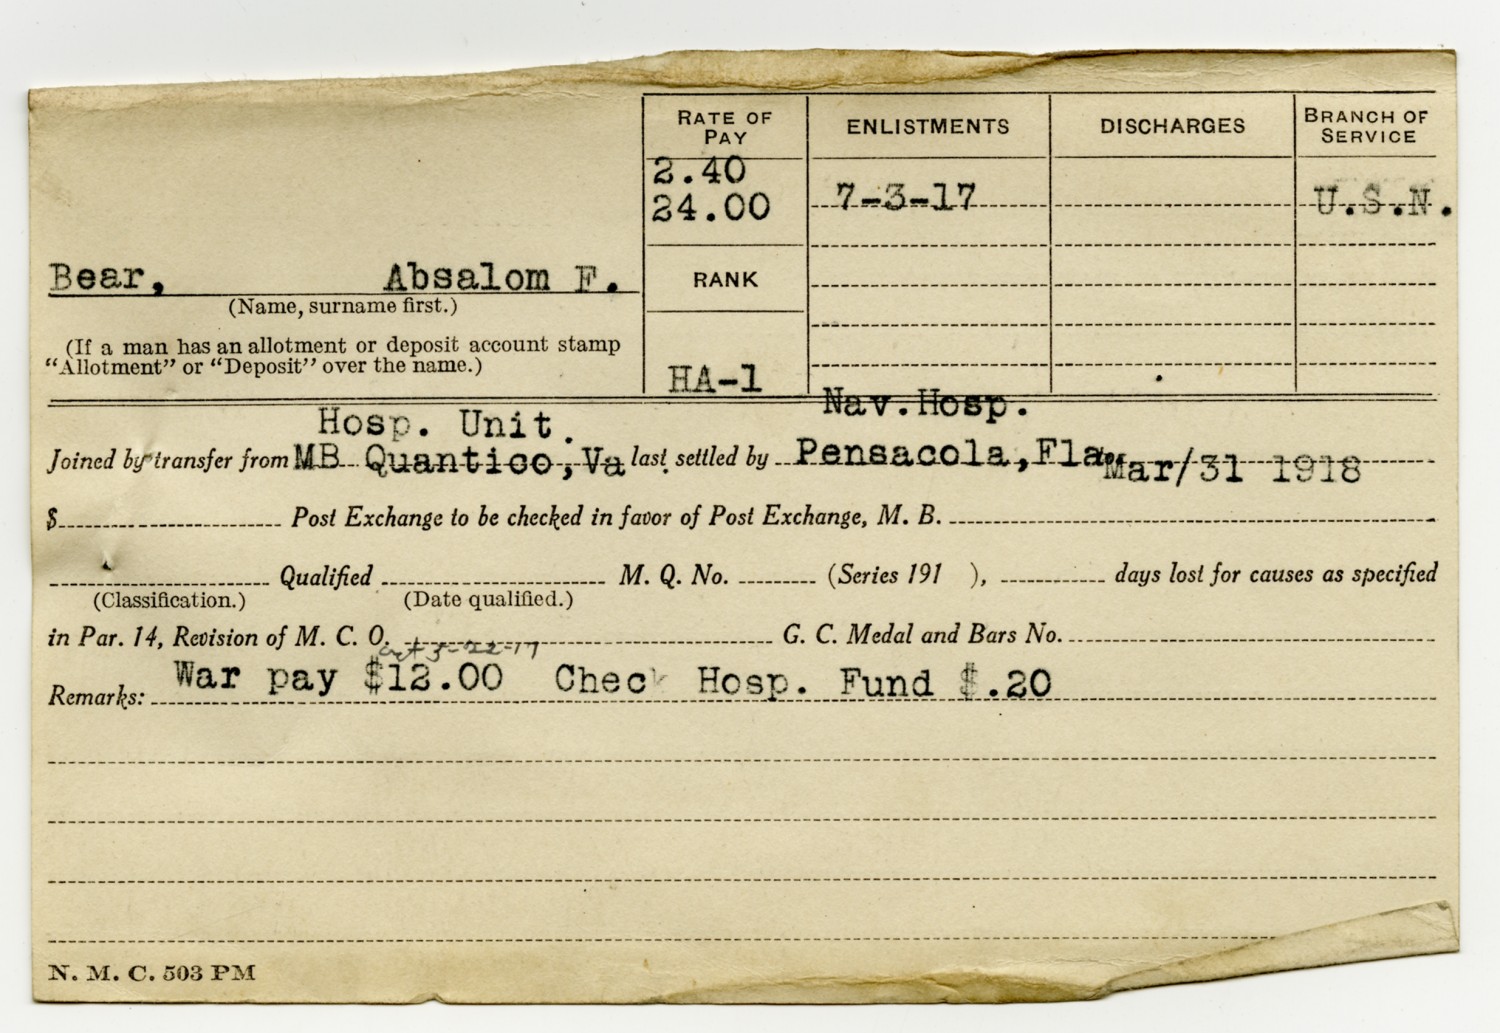 RATE OF PAY ENLISTMENTS DISCHARGES BRANCH OF SERVICE
2.40
24.00 7-3-17 U.S.N.
Bear, Absalom F. RANK
(Name, surname first.)
(If a man has an allotment or deposit account stamp
“Allotment” or “Deposit” over the name.)
HA-1
Hosp. Unit. Nav.Hosp.
Joined by transfer from MB Quantico, Va last settled by Pensacola,Fla. Mar/31 1918
$ Post Exchange to be checked in favor of Post Exchange, M. B.
Qualified M. Q. No. (Series 191 ), days lost for causes as specified
(Classification.) (Date qualified.)
in Par. 14, Revision of M. C. O. G. C. Medal and Bars No.
Remarks: War pay $12.00 Check Hosp. Fund $.20
N. M. C. 503 PM